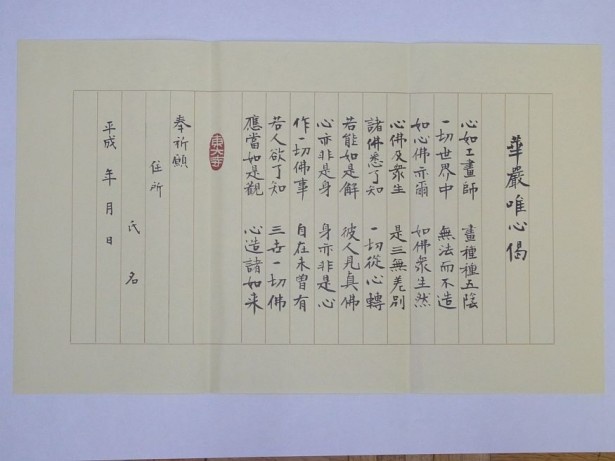 華嚴唯心偈
心如工畫師 畫種種五陰
一切世界中 無法而不造
如心佛亦爾 如佛衆生然
心佛及衆生 是三無差別
諸佛悉了知 一切從心轉
若能如是解 彼人見真佛
心亦非是身 身亦非是心
作一切佛事 自在未曾有
若人欲了知 三世一切佛
應當如是觀 心造諸如来
東大寺
奉祈願
住所
氏名
平成 年 月 日